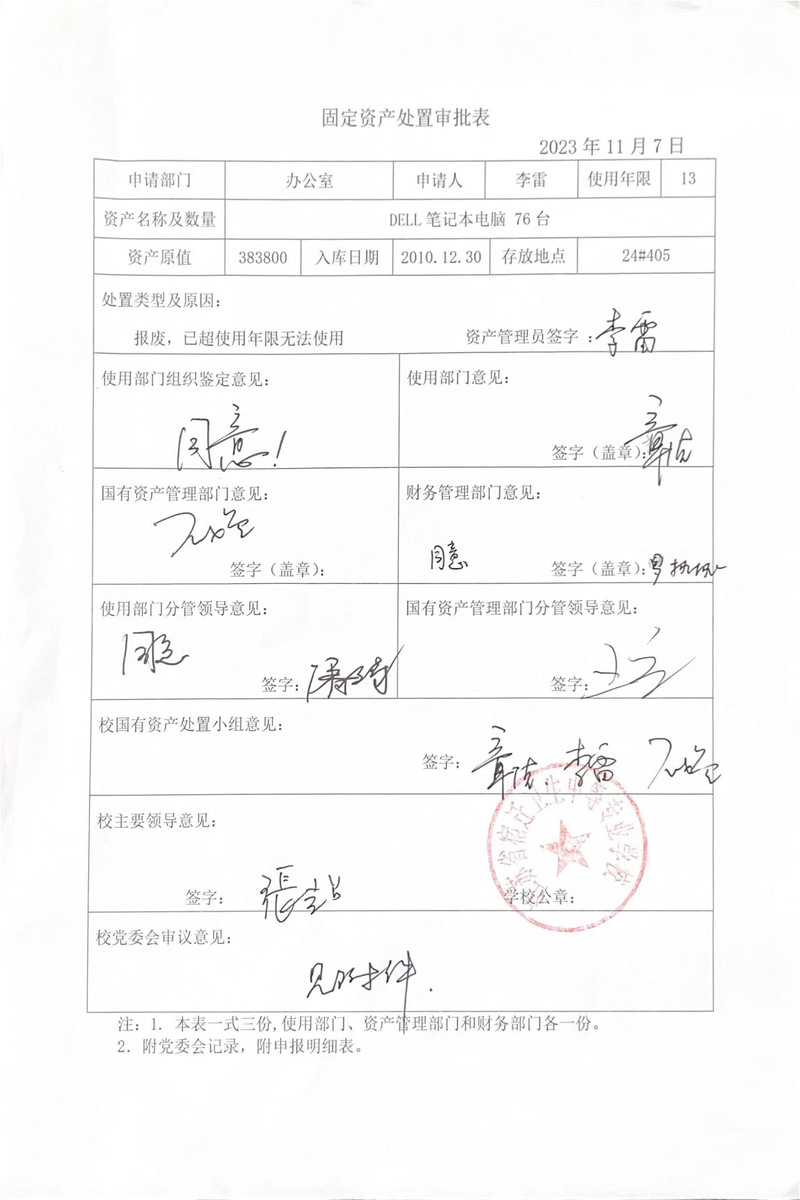 固定资产处置审批表
2023 年 11 月 7 日
申请部门 办公室 申请人 李雷 使用年限 13
资产名称及数量 DELL 笔记本电脑 76 台
资产原值 383800 入库日期 2010.12.30 存放地点 24#405
处置类型及原因：
报废，已超使用年限无法使用 资产管理员签字：李雷
使用部门组织鉴定意见： 使用部门意见：
同意！
签字（盖章）：
国有资产管理部门意见： 财务管理部门意见：
同意
签字（盖章）： 签字（盖章）：
使用部门分管领导意见： 国有资产管理部门分管领导意见：
同意
签字： 签字：
校国有资产处置小组意见：
签字： 李雷
江苏省宿迁卫生中等专业学校
校主要领导意见：
签字： 学校公章：
校党委会审议意见：
见附件.
注：1. 本表一式三份,使用部门、资产管理部门和财务部门各一份。
2. 附党委会记录，附申报明细表。